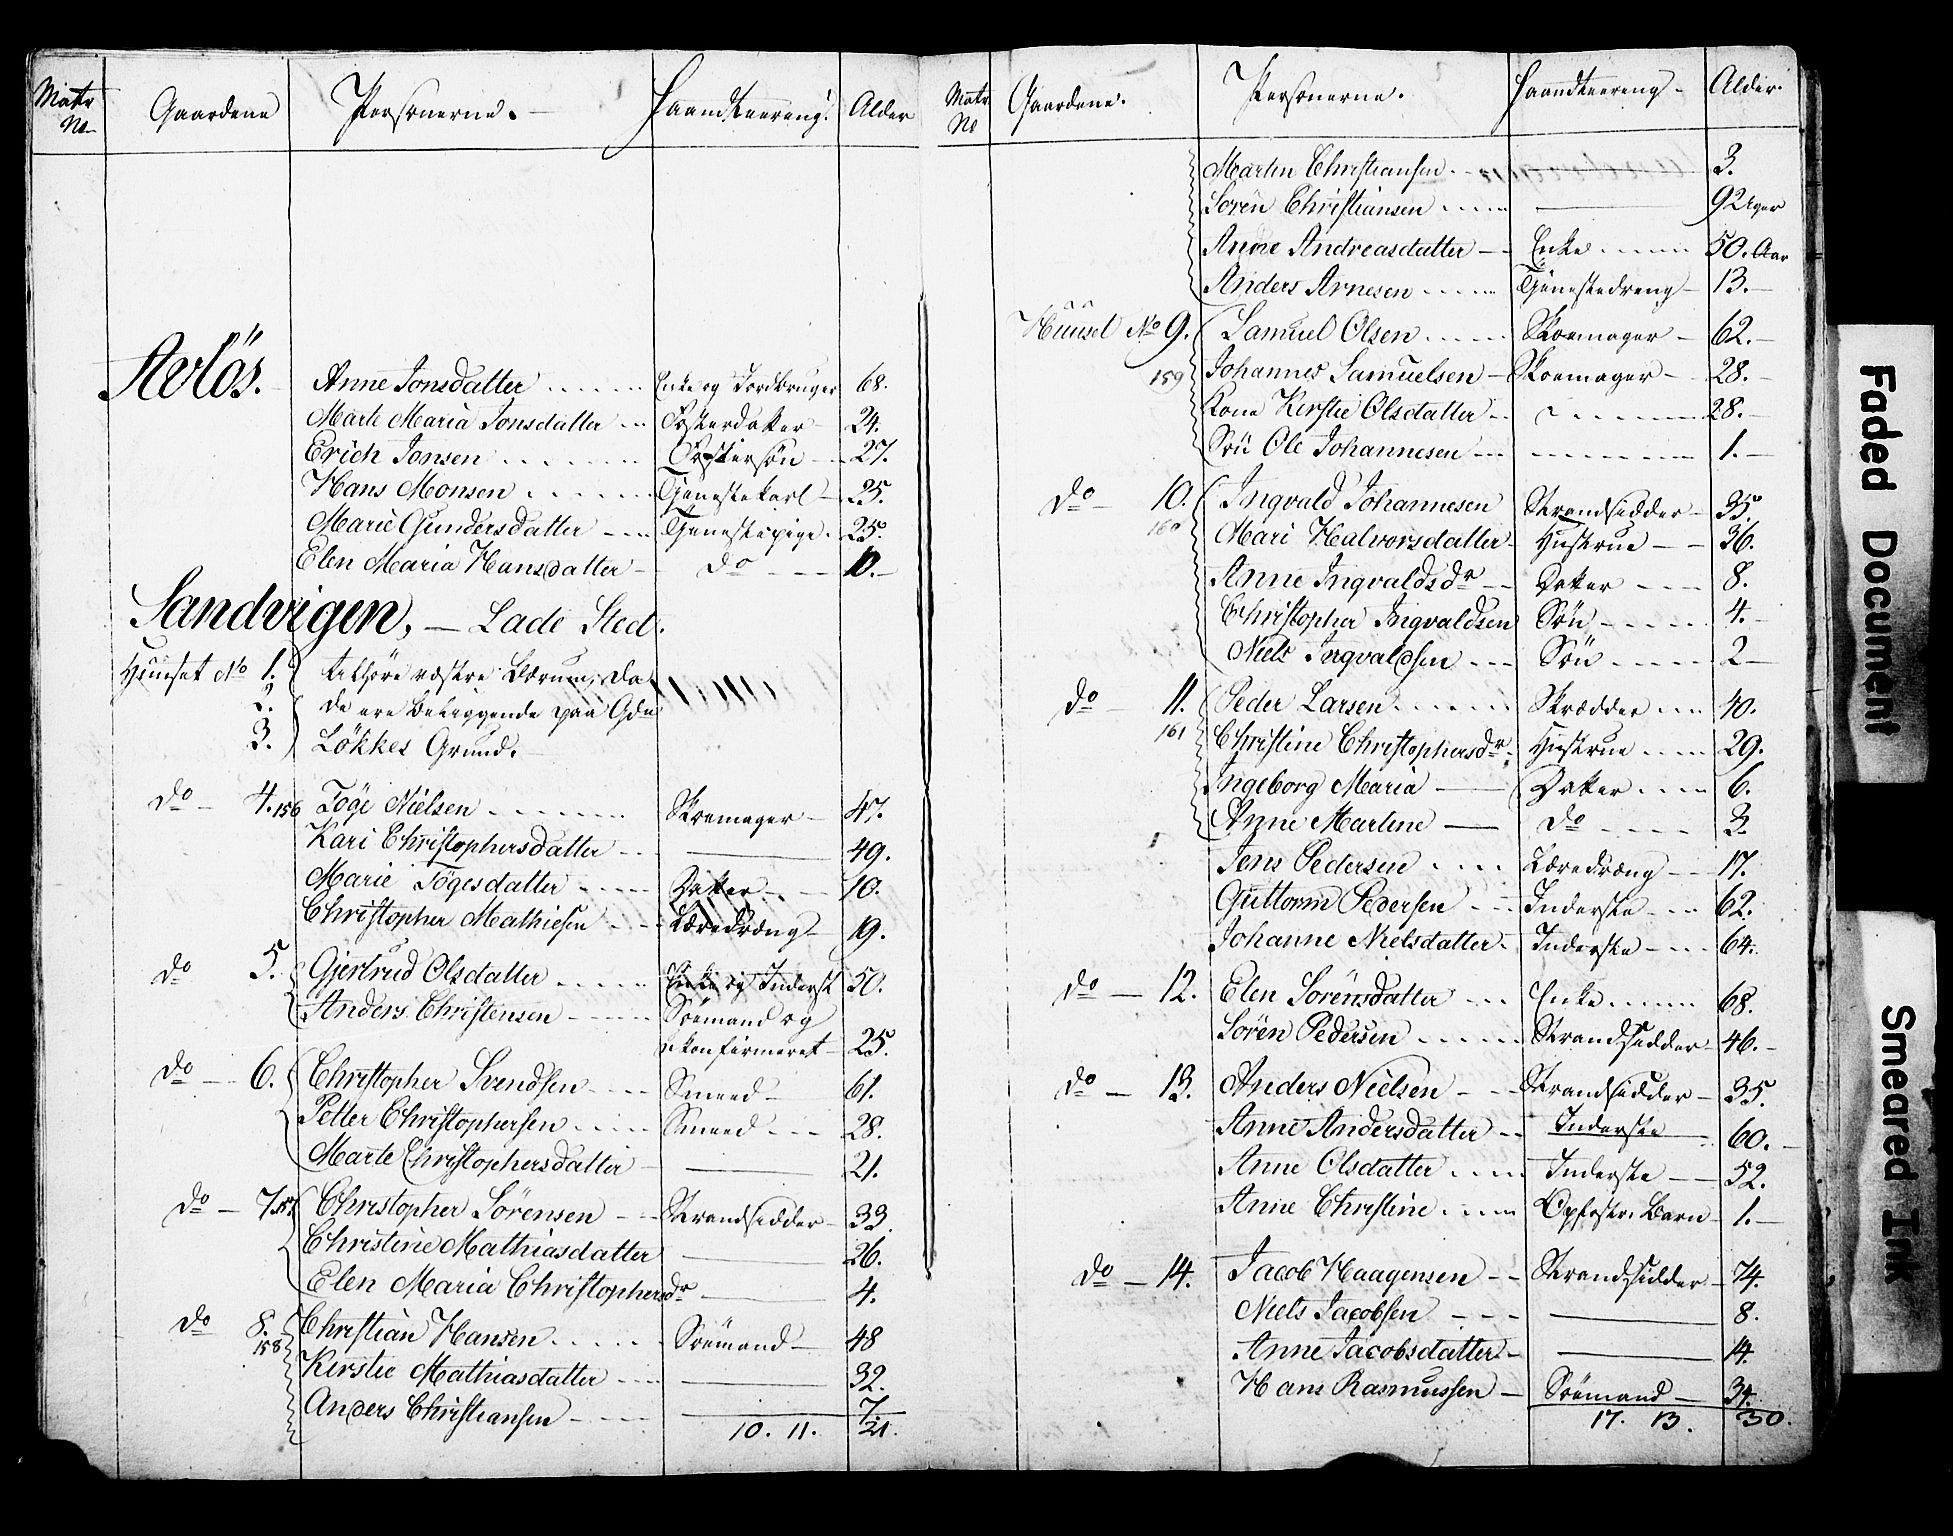 Matr No Gaardene Personerne. Haandteering Alder
Avlös. Anne Jonsdatter Enke og Jordbruger 68.
Marte Maria Jonsdatter Fosterdatter 24.
Erich Jonsen Fostersøn 27.
Hans Monsen Tjenestekarl 25.
Marie Gundersdatter Tjenestepige 25.
Elen Maria Hansdatter do 10.
Sandvigen, Lade Sted.
Huuset No 1. tilhöre vestre Bærum, da
2. de ere beliggende paa Gdn
3. Løkkes Grund.
do 4. 156 Töge Nielsen Skomager 47.
Kari Christophersdatter 49.
Marie Tögesdatter Datter 10.
Christopher Mathiesen Læredræng 19.
do 5. Gjertrud Olsdatter Enke og Inderst 50.
Anders Christensen Söemand og
ukonfirmeret 25.
do 6. Christopher Svendsen Smeed 61.
Petter Christophersen Smeed 28.
Marte Christophersdatter 21.
do 7. 157 Christopher Sörensen Strandsidder 33.
Christine Mathiasdatter 26.
Elen Maria Christophersdr 4.
do 8. Christian Hansen Söemand 48
158
Kirstie Mathiasdatter 32.
Anders Christiansen 7.
10. 11. 21.
Matr No Gaardene. Personerne. Haandteering Alder.
Martin Christiansen 3.
Sören Christiansen 92 Uger
Anne Andreasdatter Enke 50. Aar
Anders Arnesen Tjenestedreng 13.
Huuset No 9. Samuel Olsen Skomager 62.
159 Johannes Samuelsen Skoemager 28.
Kone Kirstie Olsdatter 28.
Sön Ole Johannesen 1.
do 10. Ingvald Johannesen Strandsidder 35.
160 Mari Halvorsdatter Hustrue 36.
Anne Ingvaldsdr Datter 8.
Christopher Ingvaldsen Sön 4.
Niels Ingvaldsen Sön 2
do 11. Peder Larsen Skrædder 40.
161 Christine Christophersdr Hustrue 29.
Ingeborg Maria Datter 6.
Anne Martine do 3.
Jens Pedersen Læredræng 17.
Guttorm Pedersen Inderste 62.
Johanne Nielsdatter Inderste 64.
do 12. Elen Sörensdatter Enke 68.
Sören Pedersen Strandsidder 46.
do 13. Anders Nielsen Strandsidder 35.
Anne Andersdatter Inderste 60.
Anne Olsdatter Inderste 52.
Anne Christine Opfostr. Barn 1.
do 14. Jacob Haagensen Strandsidder 74.
Niels Jacobsen 8.
Anne Jacobsdatter 14.
Hans Rasmussen Söemand 34.
17. 13. 30.
Faded Document
Smeared Ink